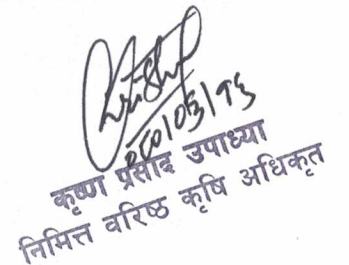 ०८०/०३/१३
कृष्ण प्रसाद उपाध्या
निमित्त वरिष्ठ कृषि अधिकृत